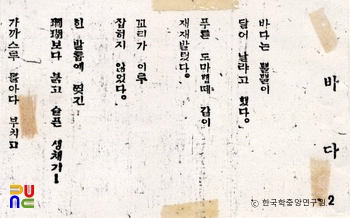 바다 2
바다는 뿔뿔이
달어 날랴고 했다。
푸른 도마뱀떼 같이
재재발렀다。
꼬리가 이루
잡히지 않었다。
힌 발톱에 찢긴
珊瑚보다 붉고 슬픈 생채기!
가까스루 몰아다 부치고
© 한국학중앙연구원